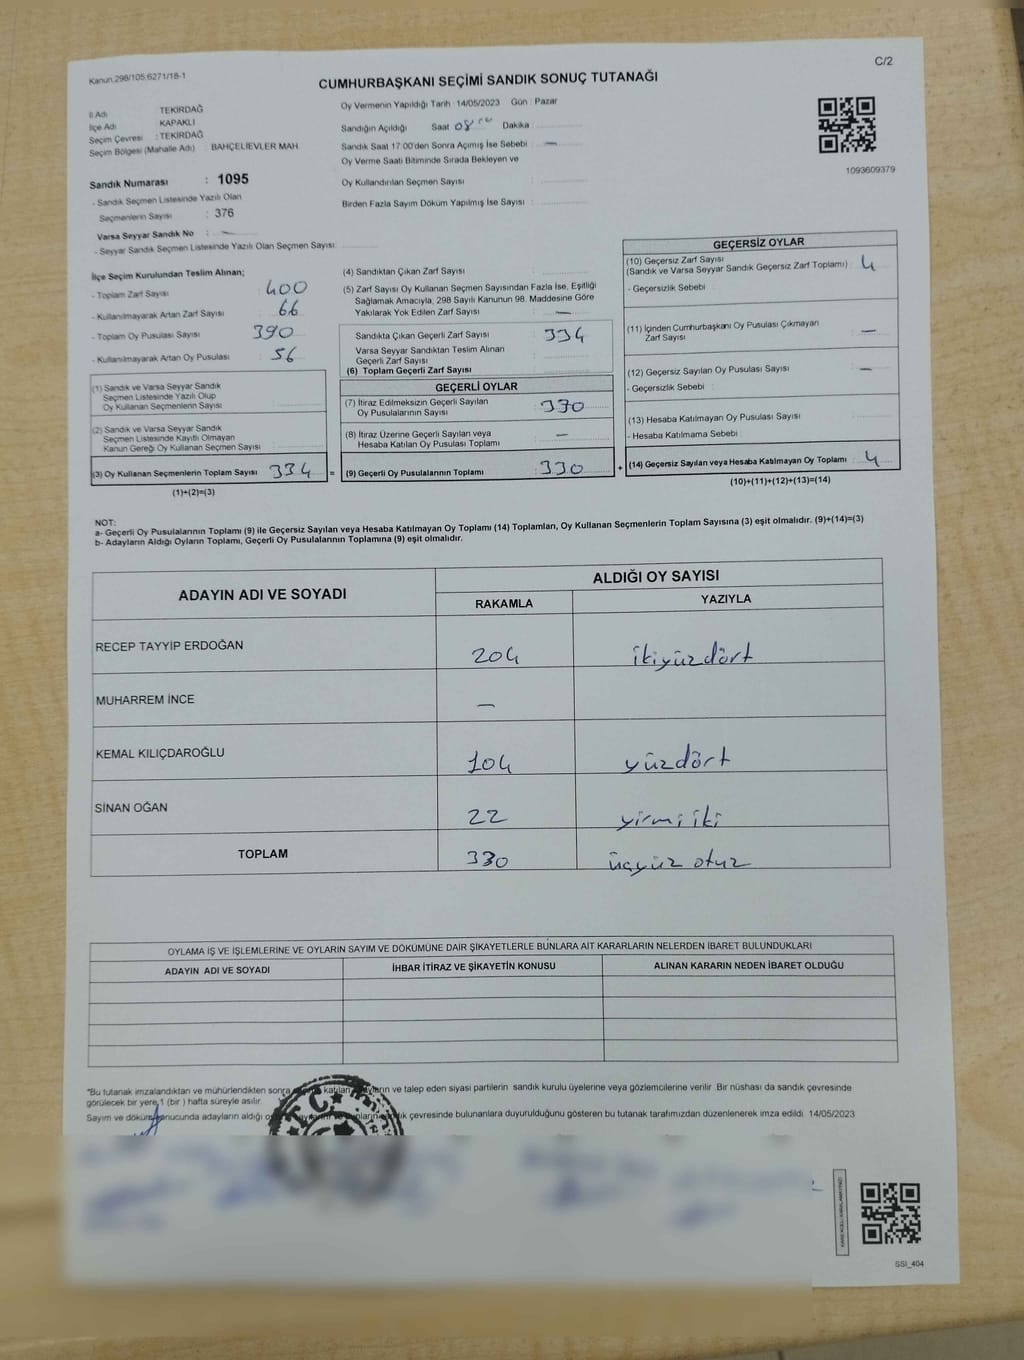 Kanun.298/105;6271/18-1
C/2
CUMHURBAŞKANI SEÇİMİ SANDIK SONUÇ TUTANAĞI
İl Adı TEKİRDAĞ
İlçe Adı KAPAKLI
Seçim Çevresi : TEKİRDAĞ
Seçim Bölgesi (Mahalle Adı) : BAHÇELİEVLER MAH.
Oy Vermenin Yapıldığı Tarih 14/05/2023 Gün : Pazar
Sandığın Açıldığı Saat 08 Dakika :
Sandık Saat 17:00'den Sonra Açılmış İse Sebebi : —
Oy Verme Saati Bitiminde Sırada Bekleyen ve
Oy Kullandırılan Seçmen Sayısı :
Birden Fazla Sayım Döküm Yapılmış İse Sayısı :
1093609379
Sandık Numarası : 1095
- Sandık Seçmen Listesinde Yazılı Olan
Seçmenlerin Sayısı : 376
Varsa Seyyar Sandık No : —
- Seyyar Sandık Seçmen Listesinde Yazılı Olan Seçmen Sayısı:
İlçe Seçim Kurulundan Teslim Alınan;
- Toplam Zarf Sayısı : 400
- Kullanılmayarak Artan Zarf Sayısı : 66
- Toplam Oy Pusulası Sayısı : 390
- Kullanılmayarak Artan Oy Pusulası : 56
(1) Sandık ve Varsa Seyyar Sandık
Seçmen Listesinde Yazılı Olup
Oy Kullanan Seçmenlerin Sayısı :
(2) Sandık ve Varsa Seyyar Sandık
Seçmen Listesinde Kayıtlı Olmayan
Kanun Gereği Oy Kullanan Seçmen Sayısı :
(3) Oy Kullanan Seçmenlerin Toplam Sayısı : 334 =
(1)+(2)=(3)
(4) Sandıktan Çıkan Zarf Sayısı :
(5) Zarf Sayısı Oy Kullanan Seçmen Sayısından Fazla İse, Eşitliği
Sağlamak Amacıyla, 298 Sayılı Kanunun 98. Maddesine Göre
Yakılarak Yok Edilen Zarf Sayısı : —
Sandıkta Çıkan Geçerli Zarf Sayısı : 334
Varsa Seyyar Sandıktan Teslim Alınan
Geçerli Zarf Sayısı :
(6) Toplam Geçerli Zarf Sayısı :
GEÇERLİ OYLAR
(7) İtiraz Edilmeksizin Geçerli Sayılan
Oy Pusulalarının Sayısı : 330
(8) İtiraz Üzerine Geçerli Sayılan veya
Hesaba Katılan Oy Pusulası Toplamı : —
(9) Geçerli Oy Pusulalarının Toplamı : 330 +
GEÇERSİZ OYLAR
(10) Geçersiz Zarf Sayısı
(Sandık ve Varsa Seyyar Sandık Geçersiz Zarf Toplamı) : 4
- Geçersizlik Sebebi :
(11) İçinden Cumhurbaşkanı Oy Pusulası Çıkmayan
Zarf Sayısı : —
(12) Geçersiz Sayılan Oy Pusulası Sayısı : —
- Geçersizlik Sebebi :
(13) Hesaba Katılmayan Oy Pusulası Sayısı :
- Hesaba Katılmama Sebebi :
(14) Geçersiz Sayılan veya Hesaba Katılmayan Oy Toplamı : 4
(10)+(11)+(12)+(13)=(14)
NOT:
a- Geçerli Oy Pusulalarının Toplamı (9) ile Geçersiz Sayılan veya Hesaba Katılmayan Oy Toplamı (14) Toplamları, Oy Kullanan Seçmenlerin Toplam Sayısına (3) eşit olmalıdır. (9)+(14)=(3)
b- Adayların Aldığı Oyların Toplamı, Geçerli Oy Pusulalarının Toplamına (9) eşit olmalıdır.
ADAYIN ADI VE SOYADI ALDIĞI OY SAYISI
RAKAMLA YAZIYLA
RECEP TAYYİP ERDOĞAN 204 ikiyüzdört
MUHARREM İNCE —
KEMAL KILIÇDAROĞLU 104 yüzdört
SİNAN OĞAN 22 yirmi iki
TOPLAM 330 üçyüz otuz
OYLAMA İŞ VE İŞLEMLERİNE VE OYLARIN SAYIM VE DÖKÜMÜNE DAİR ŞİKAYETLERLE BUNLARA AİT KARARLARIN NELERDEN İBARET BULUNDUKLARI
ADAYIN ADI VE SOYADI İHBAR İTİRAZ VE ŞİKAYETİN KONUSU ALINAN KARARIN NEDEN İBARET OLDUĞU
*Bu tutanak imzalandıktan ve mühürlendikten sonra ve talep eden siyasi partilerin sandık kurulu üyelerine veya gözlemcilerine verilir. Bir nüshası da sandık çevresinde
görülecek bir yere 1 (bir) hafta süreyle asılır.
Sayım ve döküm sonucunda adayların aldığı çevresinde bulunanlara duyurulduğunu gösteren bu tutanak tarafımızdan düzenlenerek imza edildi. 14/05/2023
T.C.
SSI_404